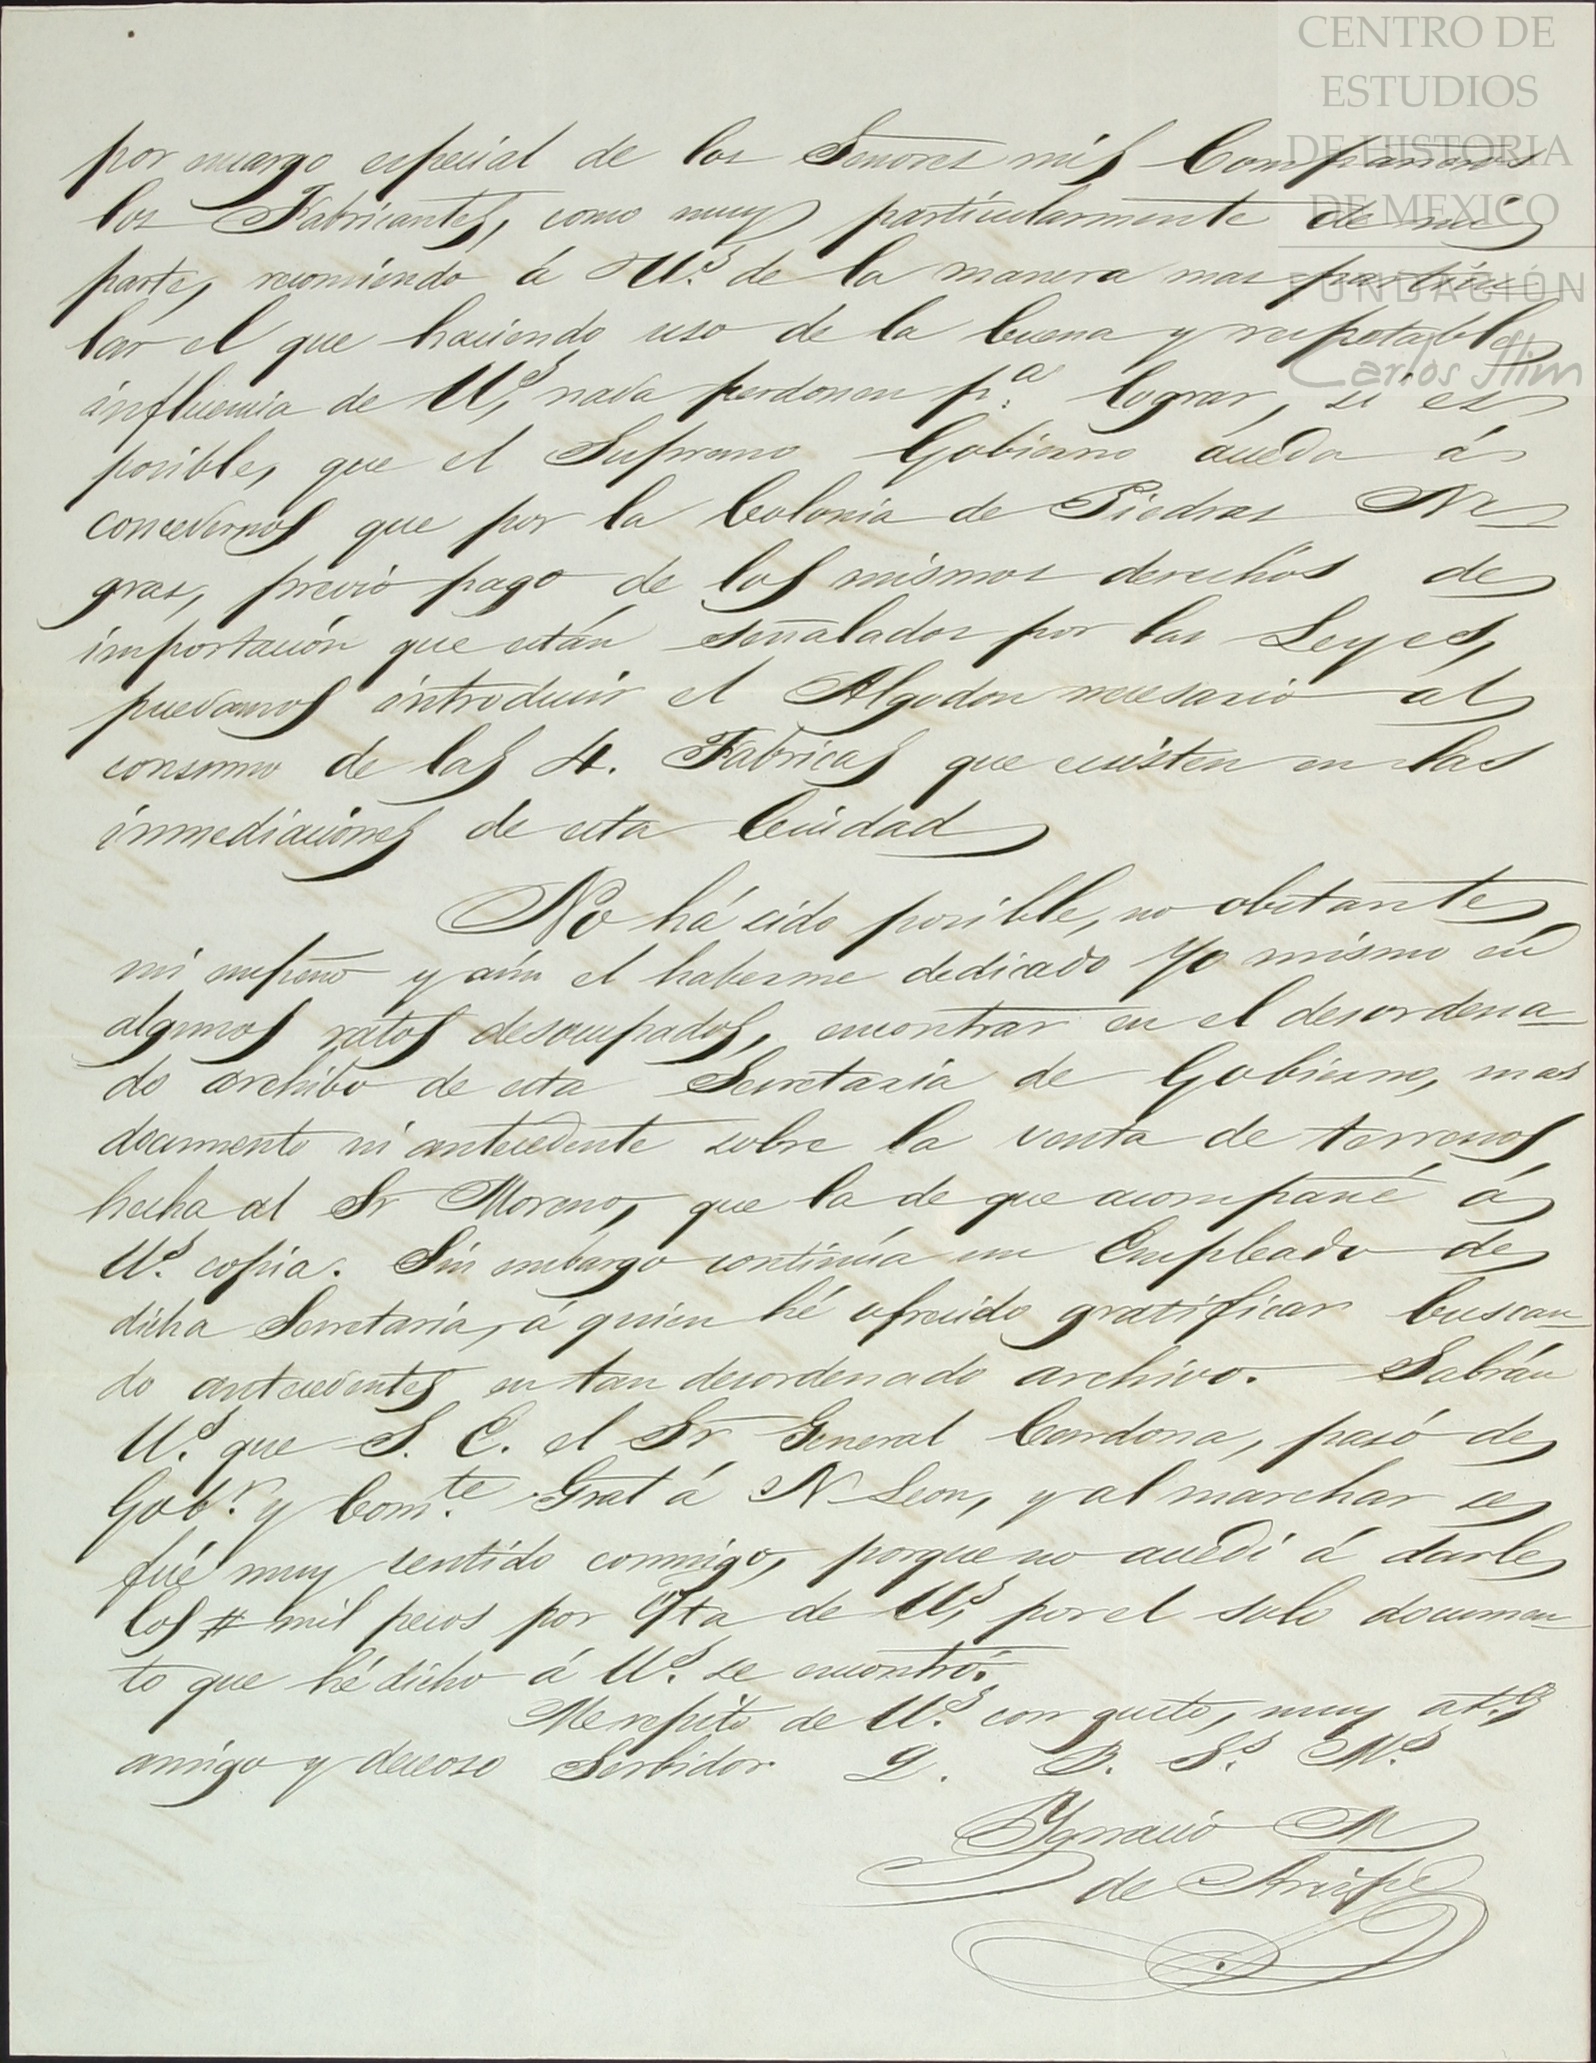 CENTRO DE
ESTUDIOS
DE HISTORIA
DE MEXICO
FUNDACIÓN
Carlos Slim
por encargo especial de los Señores mis Compañeros
los Fabricantes, como muy particularmente de mi
parte, recomiendo á U.s de la manera mas particu-
lar el que haciendo uso de la buena y respetable
influencia de U.s, nada perdonen p.a lograr, si es
posible, que el Supremo Gobierno acceda á
concedernos que por la Colonia de Piedras Ne-
gras, previo pago de los mismos derechos de
importación que están señalados por las Leyes,
puedamos introducir el Algodon necesario al
consumo de las 4. Fabricas que existen en las
inmediaciones de esta Ciudad
No há sido posible, no obstante
mi empeño y aún el haberme dedicado Yo mismo en
algunos ratos desocupados, encontrar en el desordena-
do archibo de esta Secretaria de Gobierno, mas
documento ni antecedente sobre la venta de terrenos
hecha al Sr Moreno, que la de que acompañé á
U.s copia. Sin embargo continúa un Empleado de
dicha Secretaria, á quien hé ofrecido gratificar buscan-
do antecedentes en tan desordenado archivo. Sabrán
U.s que S. E. el Sr General Cardona, pasó de
Gob.r y Com.te Gral á N Leon, y al marchar se
fué muy sentido conmigo, porque no accedí á darle
los # mil pesos por Cta de U.s, por el solo documen-
to que hé dicho á U.s se encontró.
Me repito de U.s con gusto, muy at.o
amigo y deceoso Serbidor Q. B. S.s M.s
Ygnacio M
de Arizpe